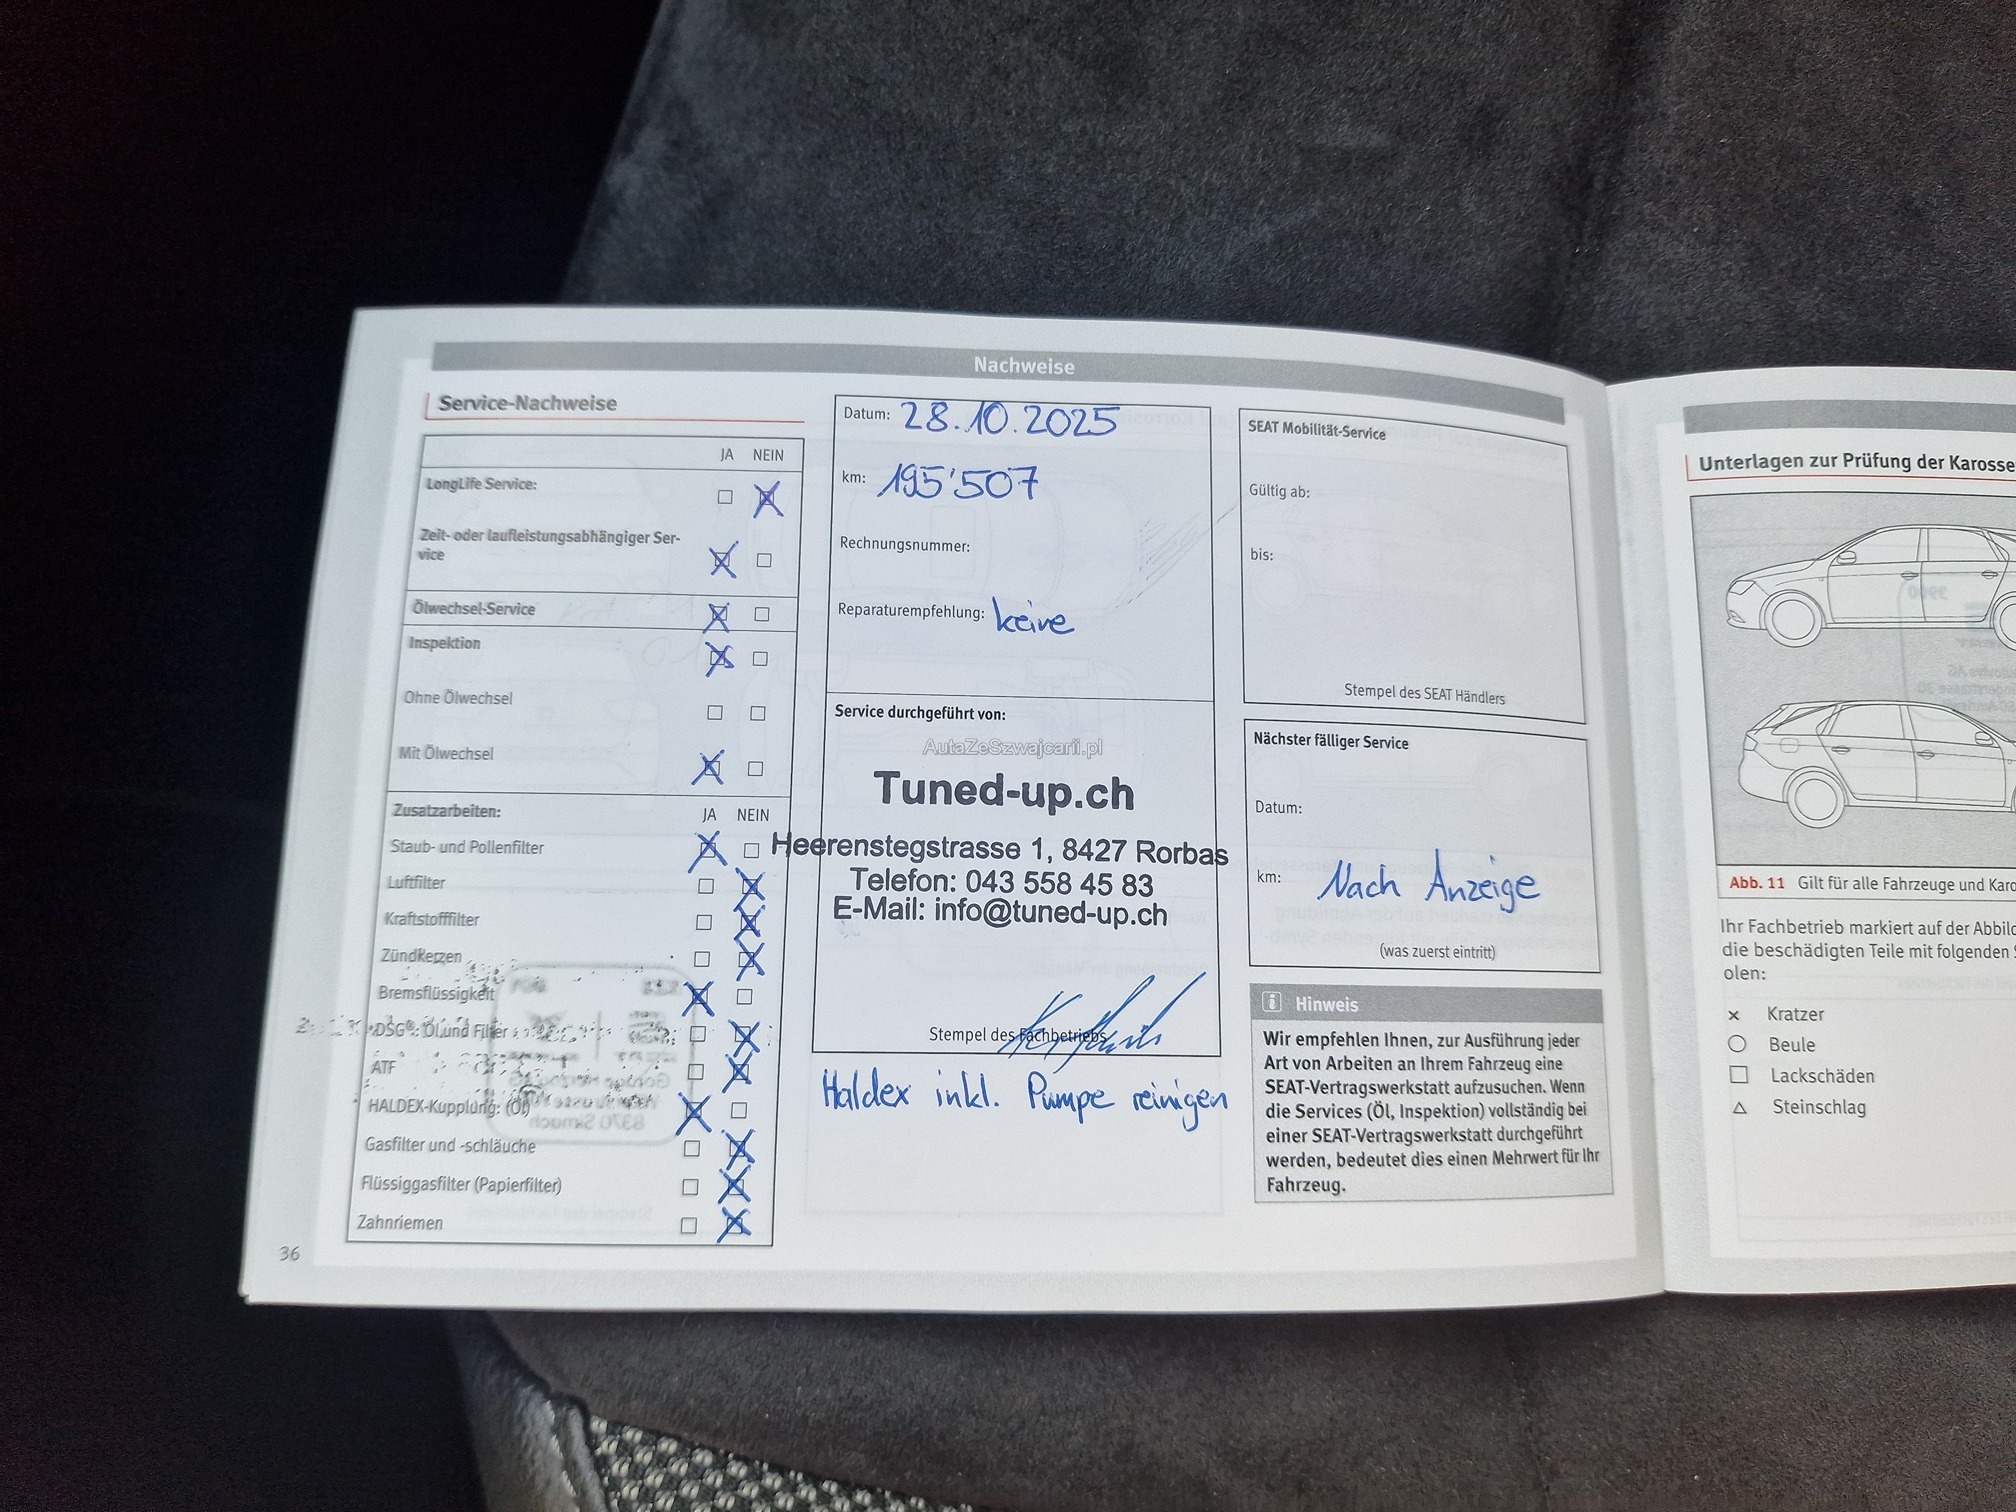 Nachweise
Service-Nachweise
JA NEIN
LongLife Service:
Zeit- oder laufleistungsabhängiger Ser-
vice
Ölwechsel-Service
Inspektion
Ohne Ölwechsel
Mit Ölwechsel
Zusatzarbeiten: JA NEIN
Staub- und Pollenfilter
Luftfilter
Kraftstofffilter
Zündkerzen
Bremsflüssigkeit
DSG®: Öl und Filter
ATF
HALDEX-Kupplung: (Öl)
Gasfilter und -schläuche
Flüssiggasfilter (Papierfilter)
Zahnriemen
36
Datum: 28.10.2025
km: 195'507
Rechnungsnummer:
Reparaturempfehlung: keine
Service durchgeführt von:
AutaZeSzwajcarii.pl
Tuned-up.ch
Heerenstegstrasse 1, 8427 Rorbas
Telefon: 043 558 45 83
E-Mail: info@tuned-up.ch
Stempel des Fachbetriebs
Haldex inkl. Pumpe reinigen
SEAT Mobilität-Service
Gültig ab:
bis:
Stempel des SEAT Händlers
Nächster fälliger Service
Datum:
km: Nach Anzeige
(was zuerst eintritt)
Hinweis
Wir empfehlen Ihnen, zur Ausführung jeder
Art von Arbeiten an Ihrem Fahrzeug eine
SEAT-Vertragswerkstatt aufzusuchen. Wenn
die Services (Öl, Inspektion) vollständig bei
einer SEAT-Vertragswerkstatt durchgeführt
werden, bedeutet dies einen Mehrwert für Ihr
Fahrzeug.
Unterlagen zur Prüfung der Karosse
Abb. 11 Gilt für alle Fahrzeuge und Karo
Ihr Fachbetrieb markiert auf der Abbild
die beschädigten Teile mit folgenden S
olen:
Kratzer
Beule
Lackschäden
Steinschlag